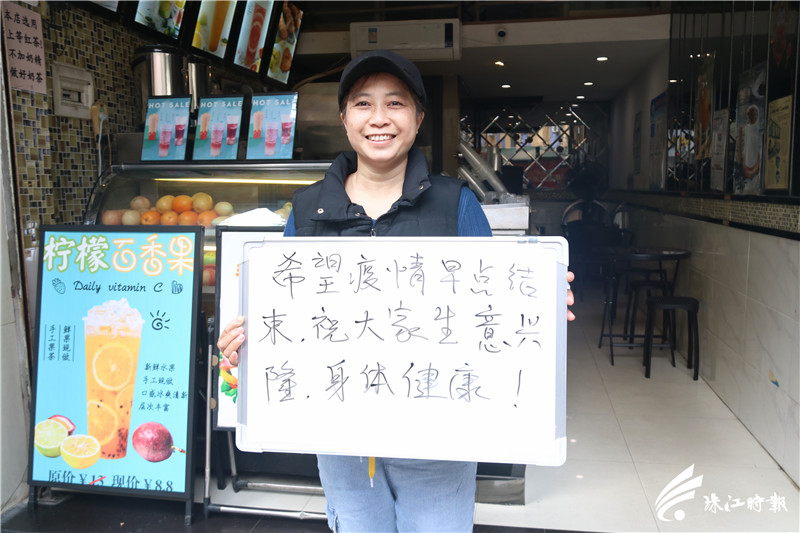 本店选用
上等红茶
不加奶精
做好奶茶
HOT SALE
HOT SALE
HOT SALE
柠檬百香果
Daily vitamin C
手工果茶
鲜果现做
新鲜水果
手工现做
口感冰爽清新
层次丰富
现价¥8.8
希望疫情早点结
束，祝大家生意兴
隆，身体健康！
珠江时报